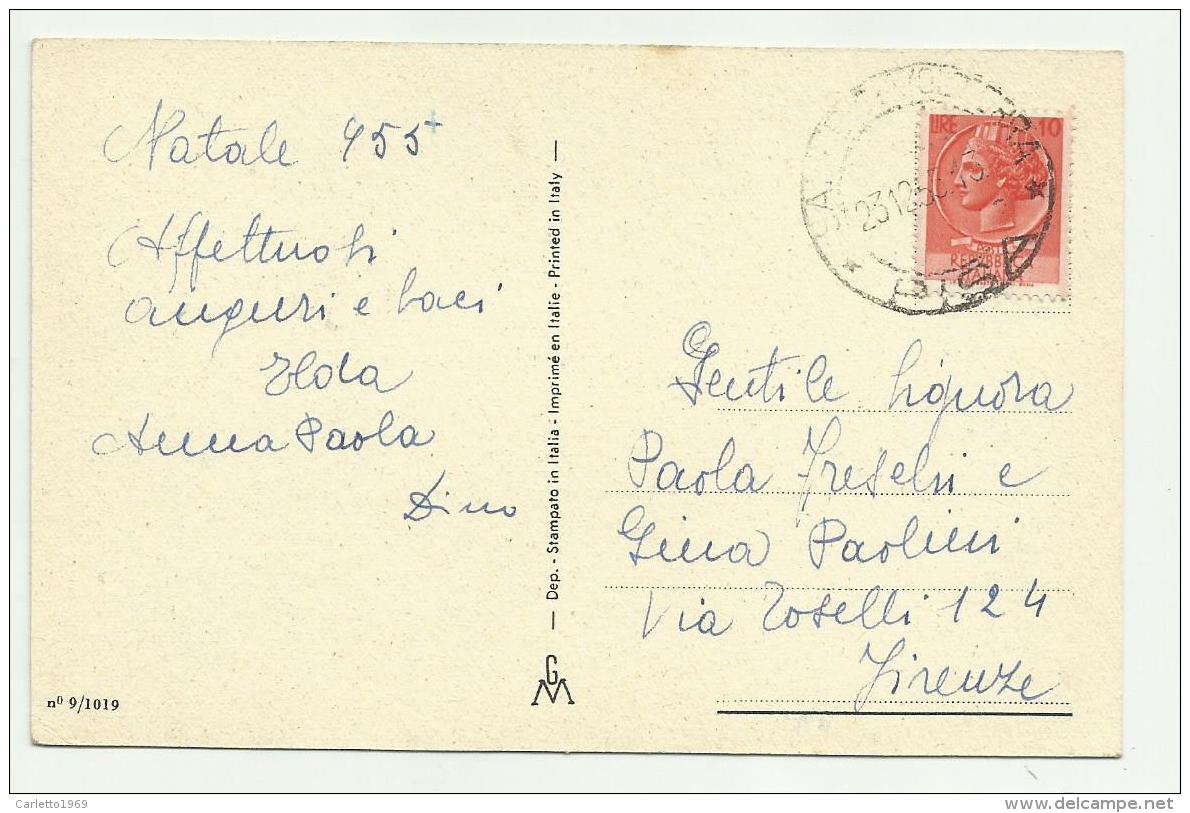 Natale 955
Affettuosi
auguri e baci
Ilda
Anna Paola
Dino
nº 9/1019
— Dep. - Stampato in Italia - Imprimé en Italie - Printed in Italy —
GM
LIRE 10
POSTE
REPUBBLICA
ITALIANA
231255
PISA
Gentile Signora
Paola Freschi e
Gina Paolini
Via Toselli 124
Firenze
Carletto1969
delcampe.net